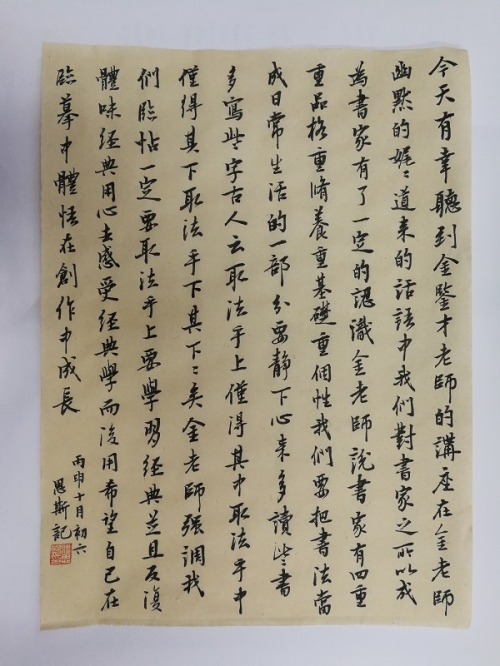 今天有幸聽到金鑒才老師的講座在金老師
幽默的娓〻道来的話語中我們對書家之所以成
為書家有了一定的認識金老師說書家有四重
重品格重脩養重基礎重個性我們要把書法當
成日常生活的一部分要静下心来多讀些書
多寫些字古人云取法乎上僅得其中取法乎中
僅得其下取法乎下其下〻矣金老師强調我
們臨帖一定要取法乎上要學習經典並且反復
體味經典用心去感受經典學而後用希望自己在
臨摹中體悟在創作中成長
丙申十月初六
思斯記